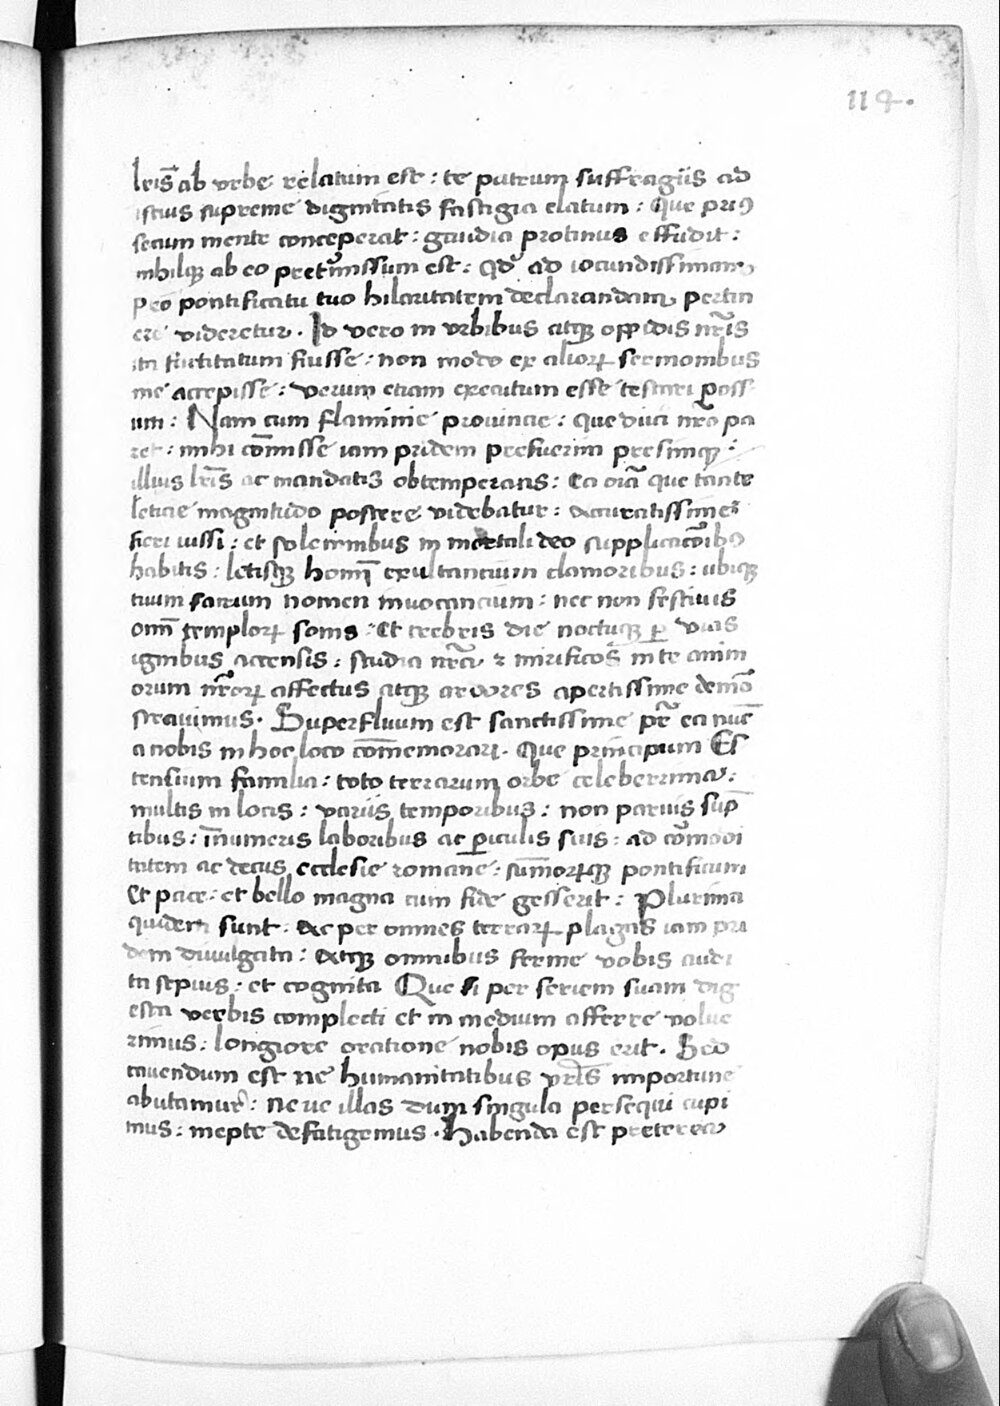 114.
lr̄is ab vrbe relatum est : te patrum suffragiis ad
istius supreme dignitatis fastigia elatum : Que priꝰ
secum mente conceperat : gaudia protinus effudit :
nihilqꝫ ab eo pretermissum est : qd̄ ad iocundissimam
pro pontificatu tuo hilaritatem declarandam pertin
ere videretur . Id vero in vrbibus atqꝫ oppidis nr̄is
ita factitatum fuisse : non modo ex alioꝝ sermonibus
me accepisse : verum etiam executum esse testari poss
um : Nam cum flaminie prouincie : que duci nr̄o pa
ret : mihi com̄isse iam pridem prefuerim presimqꝫ :
illius lr̄is ac mandatis obtemperans : Ea oīa que tante
leticie magnitudo poscere videbatur : accuratissime
fieri iussi : et solemnibus immortali deo supplicatōibꝰ
habitis : letisqꝫ homī exultantium clamoribus : ubiqꝫ
tuum sanctum nomen inuocantium : nec non festiuis
omī temploꝝ sonis : Et crebris die noctuqꝫ ꝑ vias
ignibus accensis : studia nr̄a ⁊ mirificos in te anim
orum nr̄oꝝ affectus atqꝫ ardores apertissime demō
strauimus . Superfluum est sanctissime pr̄ ea nūc
a nobis in hoc loco com̄emorari . Que principum Es
tensium familia : toto terrarum orbe celeberrima :
multis in locis : variis temporibus : non paruis sūp
tibus : īnumeris laboribus ac ꝑiculis suis : ad cōmodi
tatem ac decus ecclesie romane : sum̄oꝝqꝫ pontificum
Et pace : et bello magna cum fide gesserit : Plurima
quidem sunt : ac per omnes terraꝝ plagas iam pri
dem diuulgata : atqꝫ omnibus ferme vobis audi
ta sepius : et cognita Que si per seriem suam dig
esta verbis complecti et in medium afferre volue
rimus : longiore oratione nobis opus erit . Sed
cauendum est ne humanitatibus vr̄is importune
abutamur : ne ue illas dum singula persequi cupi
mus : inepte defatigemus . Habenda est preterea